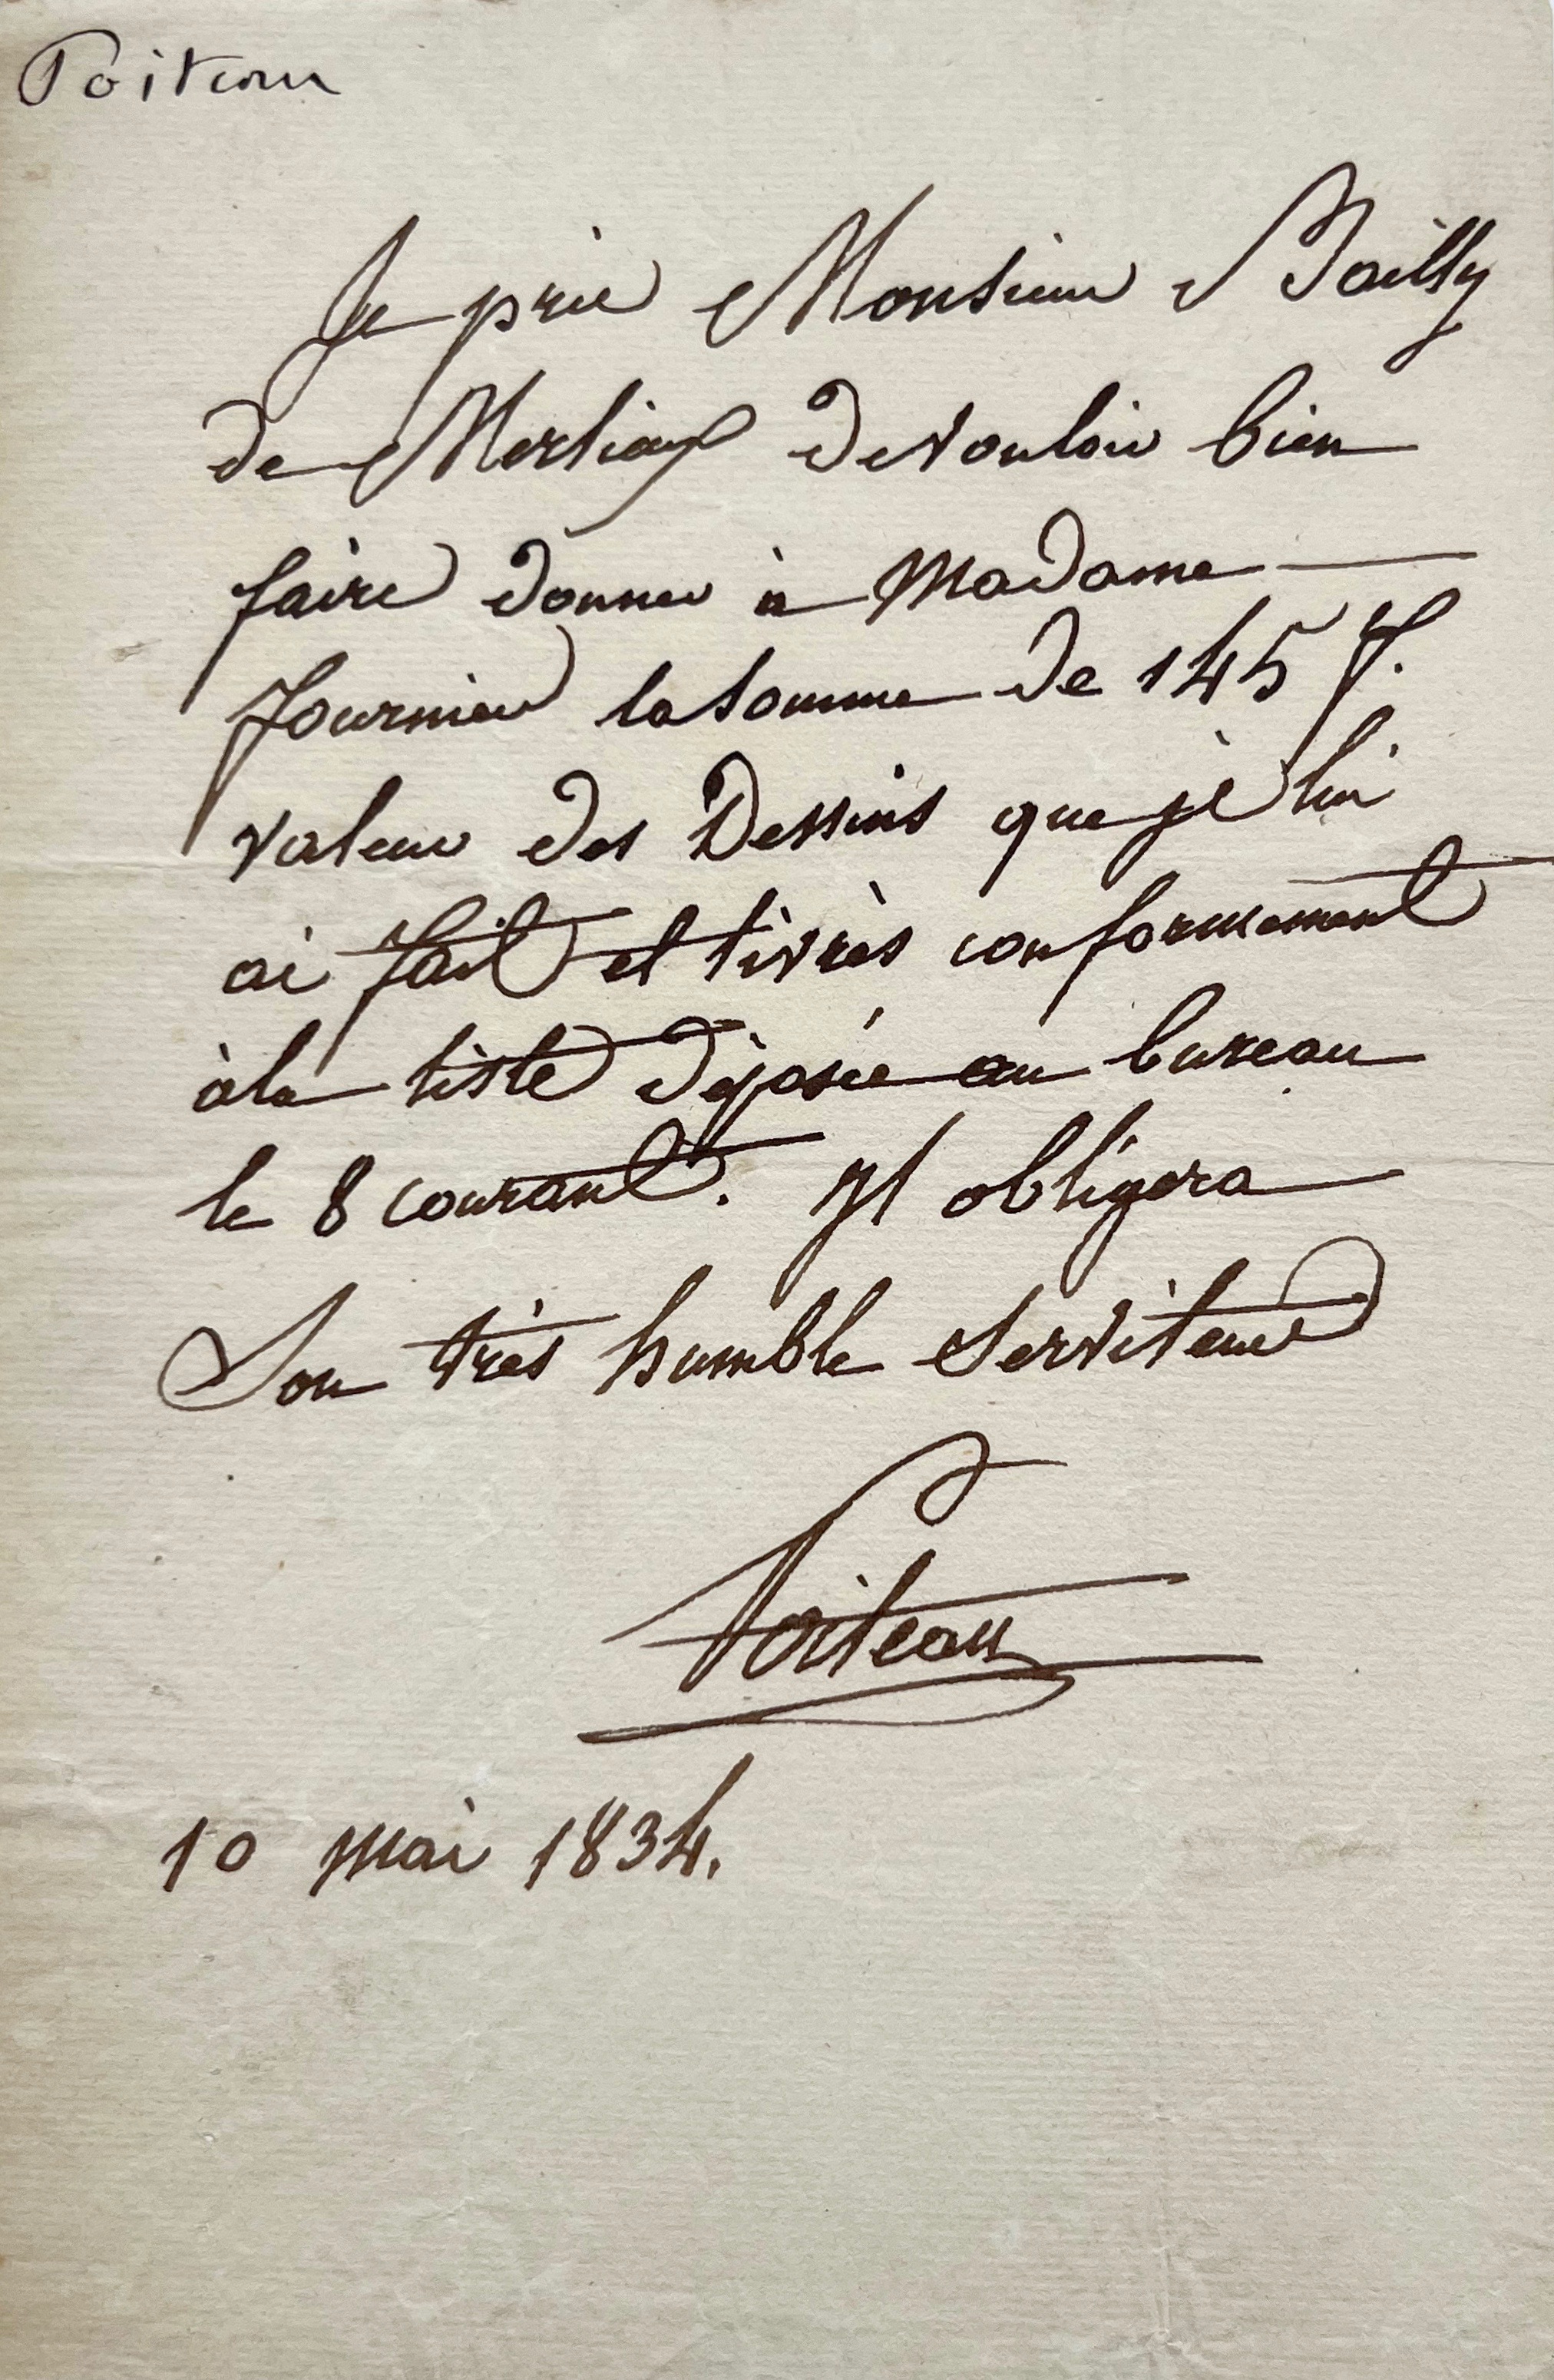 Poiteau
Je prie Monsieur Bailly
de Merlieux de vouloir bien
faire donner à Madame
fournier la somme de 145 f.
valeur des Dessins que je lui
ai fait et livrés conformement
à la liste déposée au bureau
le 8 courant. Il obligera
Son très humble Serviteur
Poiteau
10 mai 1834.